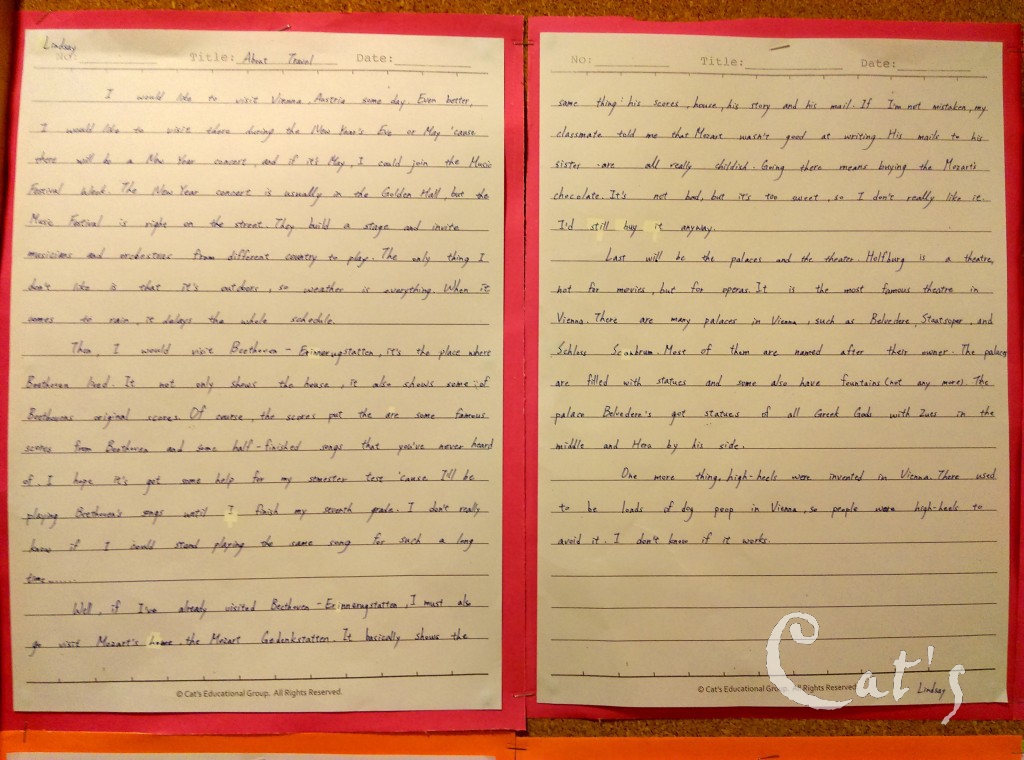 Lindsay
No: Title: About Travel Date:
I would like to visit Vienna, Austria some day. Even better,
I would like to visit there during the New Year's Eve or May 'cause
there will be a New Year concert, and if it's May, I could join the Music
Festival Week. The New Year concert is usually in the Golden Hall, but the
Music Festival is right on the street. They build a stage and invite
musicians and orchestras from different country to play. The only thing I
don't like is that it's outdoors, so weather is everything. When it
comes to rain, it delays the whole schedule.
Then, I would visit Beethoven-Erinnerugstatten, it's the place where
Beethoven lived. It not only shows the house, it also shows some of
Beethovens original scores. Of course, the scores put the are some famous
scores from Beethoven and some half-finished songs that you've never heard
of. I hope it's got some help for my semester test 'cause I'll be
playing Beethoven's songs until I finish my seventh grade. I don't really
know if I could stand playing the same song for such a long
time.......
Well, if I've already visited Beethoven-Erinnerugstatten, I must also
go visit Mozart's home, the Mozart Gedenkstatten. It basically shows the
© Cat's Educational Group. All Rights Reserved.
No: Title: Date:
same thing: his scores, house, his story and his mail. If I'm not mistaken, my
classmate told me that Mozart wasn't good at writing. His mails to his
sister are all really childish. Going there means buying the Mozart's
chocolate. It's not bad, but it's too sweet, so I don't really like it.
I'd still buy it anyway.
Last will be the palaces and the theater. Hoffburg is a theatre,
not for movies, but for operas. It is the most famous theatre in
Vienna. There are many palaces in Vienna, such as Belvedere, Staatsoper, and
Schloss Sconbrum. Most of them are named after their owner. The palaces
are filled with statues and some also have fountains (not any more). The
palace Belvedere's got statues of all Greek Gods with Zues in the
middle and Hera by his side.
One more thing, high-heels were invented in Vienna. There used
to be loads of dog poop in Vienna, so people wore high-heels to
avoid it. I don't know if it works.
© Cat's Educational Group. All Rights Reserved.
Lindsay
Cat's